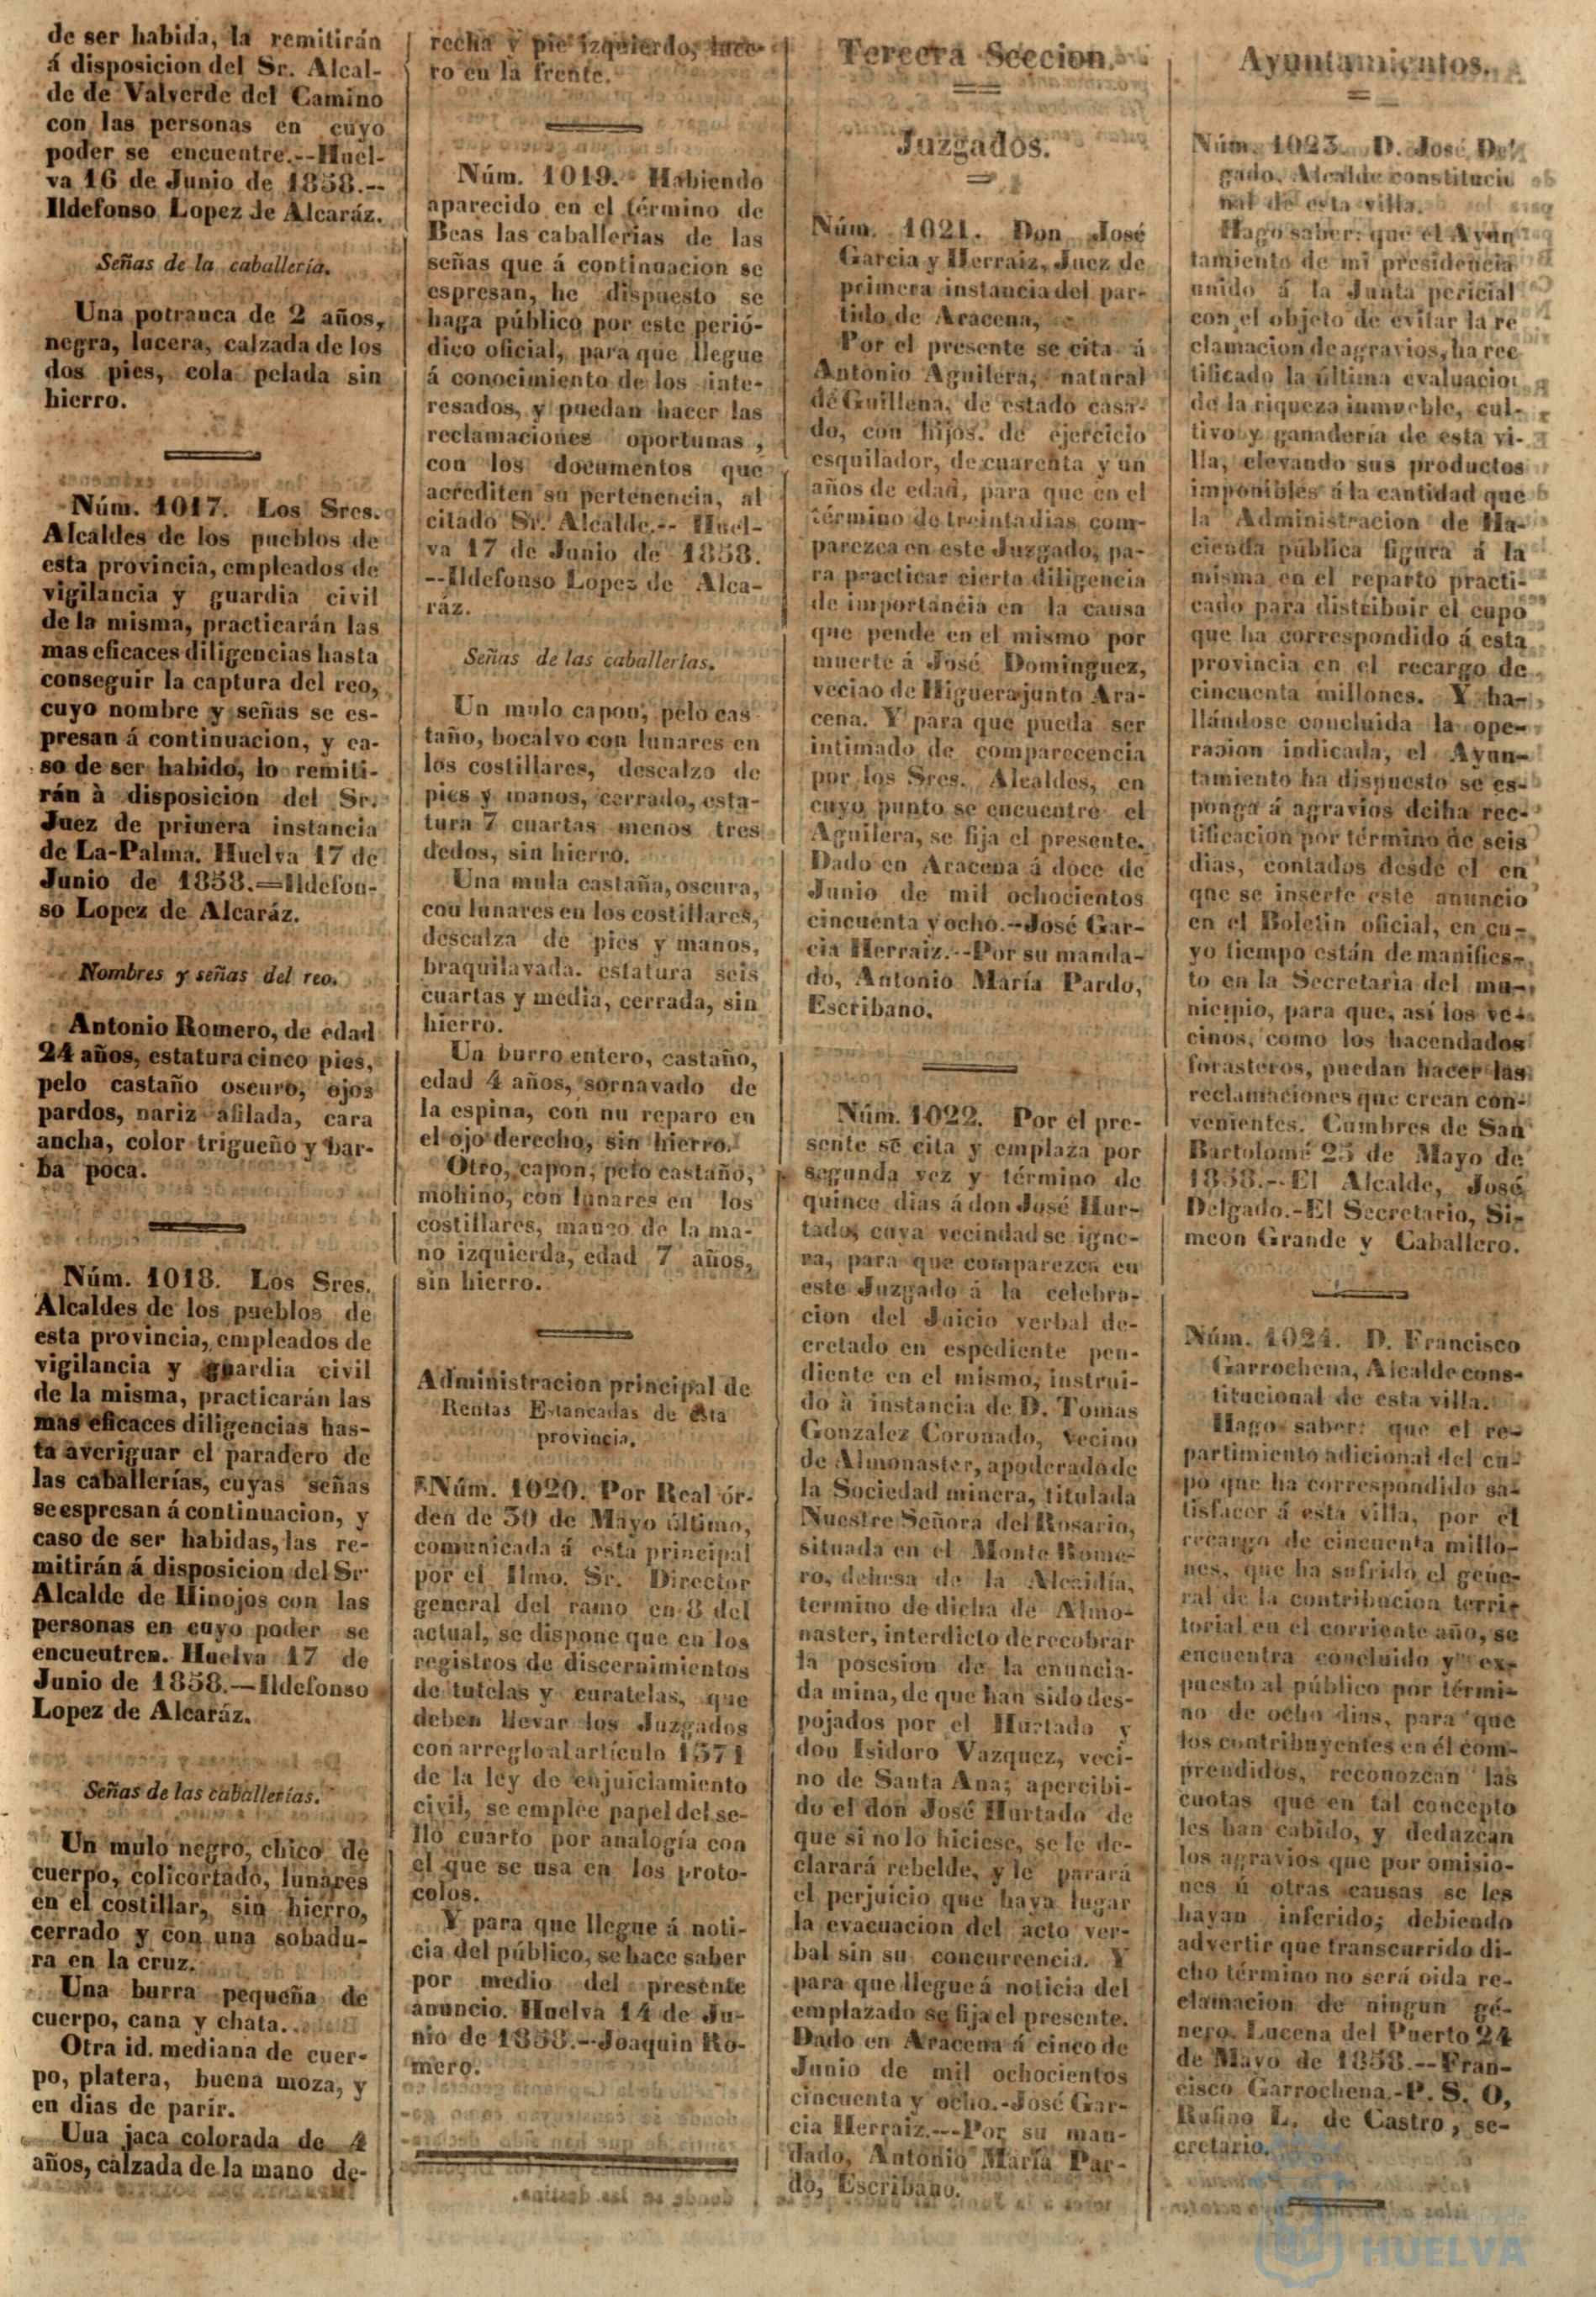 de ser habida, la remitirán
á disposicion del Sr. Alcal-
de de Valverde del Camino
con las personas en cuyo
poder se encuentre.--Huel-
va 16 de Junio de 1858.--
Ildefonso Lopez de Alcaráz.
Señas de la caballería.
Una potranca de 2 años,
negra, lucera, calzada de los
dos pies, cola pelada sin
hierro.
Núm. 1017. Los Sres.
Alcaldes de los pueblos de
esta provincia, empleados de
vigilancia y guardia civil
de la misma, practicarán las
mas eficaces diligencias hasta
conseguir la captura del reo,
cuyo nombre y señas se es-
presan á continuacion, y ca-
so de ser habido, lo remiti-
rán à disposicion del Sr.
Juez de primera instancia
de La-Palma. Huelva 17 de
Junio de 1858.=Ildefon-
so Lopez de Alcaráz.
Nombres y señas del reo.
Antonio Romero, de edad
24 años, estatura cinco pies,
pelo castaño oscuro, ojos
pardos, nariz afilada, cara
ancha, color trigueño y bar-
ba poca.
Núm. 1018. Los Sres.
Alcaldes de los pueblos de
esta provincia, empleados de
vigilancia y guardia civil
de la misma, practicarán las
mas eficaces diligencias has-
ta averiguar el paradero de
las caballerías, cuyas señas
se espresan á continuacion, y
caso de ser habidas, las re-
mitirán á disposicion del Sr
Alcalde de Hinojos con las
personas en cuyo poder se
encuentren. Huelva 17 de
Junio de 1858.—Ildefonso
Lopez de Alcaráz.
Señas de las caballerías.
Un mulo negro, chico de
cuerpo, colicortado, lunares
en el costillar, sin hierro,
cerrado y con una sobadu-
ra en la cruz.
Una burra pequeña de
cuerpo, cana y chata.
Otra id. mediana de cuer-
po, platera, buena moza, y
en dias de parir.
Una jaca colorada de 4
años, calzada de la mano de-
recha y pie izquierdo, luce-
ro en la frente.
Núm. 1019. Habiendo
aparecido en el término de
Beas las caballerias de las
señas que á continuacion se
espresan, he dispuesto se
haga público por este perió-
dico oficial, para que llegue
á conocimiento de los inte-
resados, y puedan hacer las
reclamaciones oportunas,
con los documentos que
acrediten su pertenencia, al
citado Sr. Alcalde.-- Huel-
va 17 de Junio de 1858.
--Ildefonso Lopez de Alca-
ráz.
Señas de las caballerías.
Un mulo capon, pelo cas
taño, bocalvo con lunares en
los costillares, descalzo de
pies y manos, cerrado, esta-
tura 7 cuartas menos tres
dedos, sin hierro.
Una mula castaña, oscura,
con lunares en los costillares,
descalza de pies y manos,
braquilavada. estatura seis
cuartas y media, cerrada, sin
hierro.
Un burro entero, castaño,
edad 4 años, sornavado de
la espina, con nu reparo en
el ojo derecho, sin hierro.
Otro, capon, pelo castaño,
mohino, con lunares en los
costillares, manco de la ma-
no izquierda, edad 7 años,
sin hierro.
Administracion principal de
Rentas Estancadas de esta
provincia.
Núm. 1020. Por Real ór-
den de 30 de Mayo último,
comunicada á esta principal
por el Ilmo. Sr. Director
general del ramo en 8 del
actual, se dispone que en los
registros de discernimientos
de tutelas y curatelas, que
deben llevar los Juzgados
con arreglo al artículo 1371
de la ley de enjuiciamiento
civil, se emplee papel del se-
llo cuarto por analogía con
el que se usa en los proto-
colos.
Y para que llegue á noti-
cia del público, se hace saber
por medio del presente
anuncio. Huelva 14 de Ju-
nio de 1858.--Joaquin Ro-
mero.
Tercera Seccion.
Juzgados.
Núm. 1021. Don José
Garcia y Herraiz, Juez de
primera instancia del par-
tido de Aracena,
Por el presente se cita á
Antonio Aguilera, natural
de Guillena, de estado casa-
do, con hijos. de ejercicio
esquilador, de cuarenta y un
años de edad, para que en el
término de treinta dias com-
parezca en este Juzgado, pa-
ra practicar cierta diligencia
de importancia en la causa
que pende en el mismo por
muerte á José Dominguez,
veciao de Higuera junto Ara-
cena. Y para que pueda ser
intimado de comparecencia
por los Sres. Alcaldes, en
cuyo punto se encuentre el
Aguilera, se fija el presente.
Dado en Aracena á doce de
Junio de mil ochocientos
cincuenta y ocho.--José Gar-
cia Herraiz.--Por su manda-
do, Antonio María Pardo,
Escribano.
Núm. 1022. Por el pre-
sente se cita y emplaza por
segunda vez y término de
quince dias á don José Hur-
tado, cuya vecindad se igno-
ra, para que comparezca en
este Juzgado á la celebra-
cion del Juicio verbal de-
cretado en espediente pen-
diente en el mismo, instrui-
do à instancia de D. Tomas
Gonzalez Coronado, vecino
de Almonaster, apoderado de
la Sociedad minera, titulada
Nuestre Señora del Rosario,
situada en el Monte Rome-
ro, dehesa de la Alcaidía,
termino de dicha de Almo-
naster, interdicto de recobrar
la posesion de la enuncia-
da mina, de que han sido des-
pojados por el Hurtado y
don Isidoro Vazquez, veci-
no de Santa Ana; apercibi-
do el don José Hurtado de
que si no lo hiciese, se le de-
clarará rebelde, y le parará
el perjuicio que haya lugar
la evacuacion del acto ver-
bal sin su concurrencia. Y
para que llegue á noticia del
emplazado se fija el presente.
Dado en Aracena á cinco de
Junio de mil ochocientos
cincuenta y ocho.-José Gar-
cia Herraiz.---Por su man-
dado, Antonio María Par-
do, Escribano.
Ayuntamientos.
Núm. 1023. D. José Del
gado, Alcalde constitucio
nal de esta villa.
Hago saber: que el Ayun
tamiento de mi presidencia
unido á la Junta pericial
con el objeto de evitar la re
clamacion de agravios, ha rec
tificado la última evaluacion
de la riqueza inmueble, cul-
tivo y ganadería de esta vi-
lla, elevando sus productos
imponibles á la cantidad que
la Administracion de Ha-
cienda pública figura á la
misma en el reparto practi-
cado para distribuir el cupo
que ha correspondido á esta
provincia en el recargo de
cincuenta millones. Y ha-
llándose concluida la ope-
racion indicada, el Ayun-
tamiento ha dispuesto se es-
ponga á agravios deiha rec-
tificacion por término de seis
dias, contados desde el en
que se inserte este anuncio
en el Boletin oficial, en cu-
yo tiempo están de manifies-
to en la Secretaria del mu-
nicipio, para que, así los ve-
cinos, como los hacendados
forasteros, puedan hacer las
reclamaciones que crean con-
venientes. Cumbres de San
Bartolomé 25 de Mayo de
1858.--El Alcalde, José
Delgado.-El Secretario, Si-
meon Grande y Caballero.
Núm. 1024. D. Francisco
Garrochena, Alcalde cons-
titucional de esta villa.
Hago saber: que el re-
partimiento adicional del cu-
po que ha correspondido sa-
tisfacer á esta villa, por el
recargo de cincuenta millo-
nes, que ha sufrido el gene-
ral de la contribucion terri-
torial en el corriente año, se
encuentra concluido y ex-
puesto al público por térmi-
no de ocho dias, para que
los contribuyentes en él com-
prendidos, reconozcan las
cuotas que en tal concepto
les han cabido, y deduzcan
los agravios que por omisio-
nes ú otras causas se les
hayan inferido; debiendo
advertir que transcurrido di-
cho término no será oida re-
clamacion de ningun gé-
nero. Lucena del Puerto 24
de Mayo de 1858.--Fran-
cisco Garrochena.-P. S. O,
Rufino L. de Castro, se-
cretario.
HUELVA